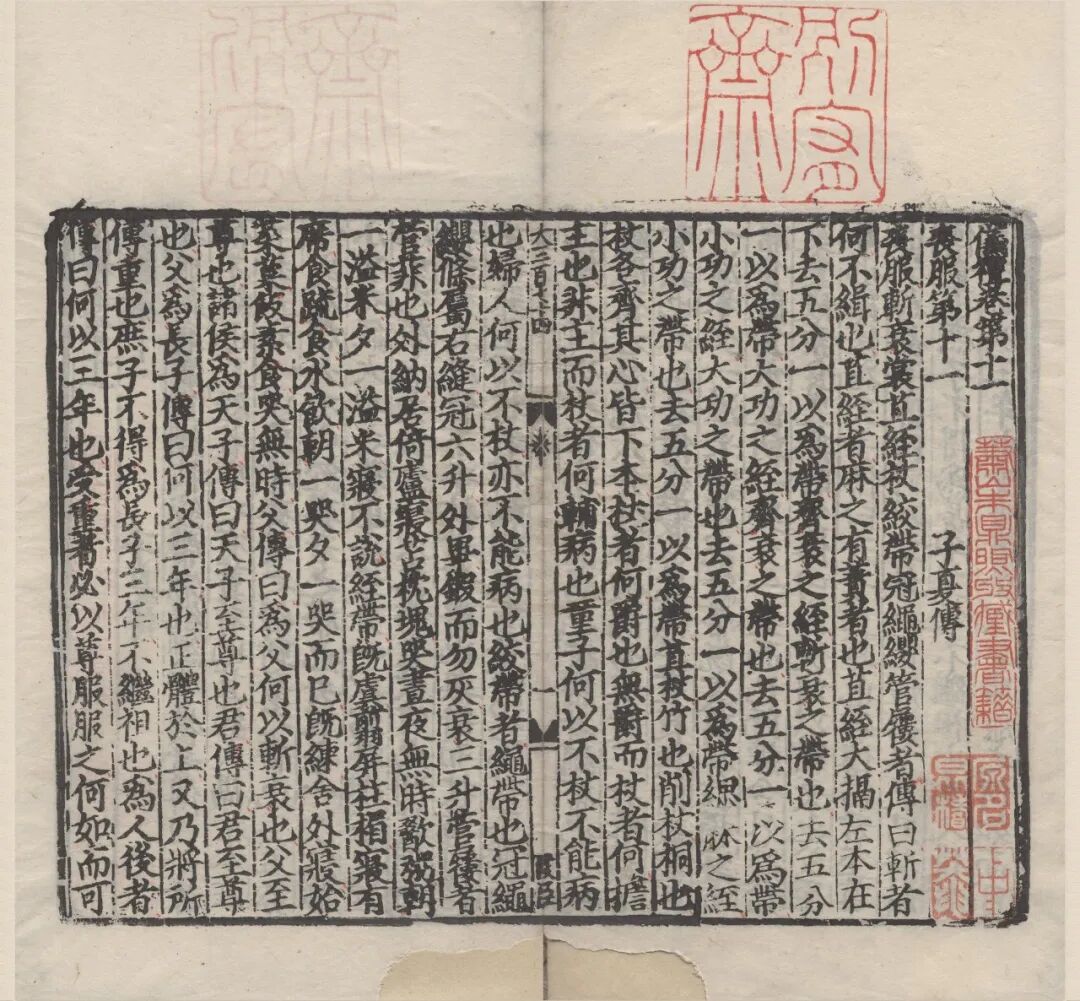 儀禮卷第十一
喪服第十一 子夏傳
喪服斬衰裳苴絰杖絞帶冠繩纓管屨者傳曰斬者
何不緝也苴絰者麻之有蕡者也苴絰大搹左本在
下去五分一以爲帶齊衰之絰斬衰之帶也去五分
一以爲帶大功之絰齊衰之帶也去五分一以爲帶
小功之絰大功之帶也去五分一以爲帶緦麻之絰
小功之帶也去五分一以爲帶苴杖竹也削杖桐也
杖各齊其心皆下本杖者何爵也無爵而杖者何擔
主也非主而杖者何輔病也童子何以不杖不能病
大二百 四
一
也婦人何以不杖亦不能病也絞帶者繩帶也冠繩
纓條屬右縫冠六升外畢鍛而勿灰衰三升管屨者
管菲也外納居倚廬寢苫枕塊哭晝夜無時歠粥朝
一溢米夕一溢米寢不說絰帶既虞翦屏柱楣寢有
席食疏食水飲朝一哭夕一哭而已既練舍外寢始
食菜菓飯素食哭無時父傳曰爲父何以斬衰也父至
尊也諸侯爲天子傳曰天子至尊也君傳曰君至尊
也父爲長子傳曰何以三年也正體於上又乃將所
傳重也庶子不得爲長子三年不繼祖也爲人後者
傳曰何以三年也受重者必以尊服服之何如而可